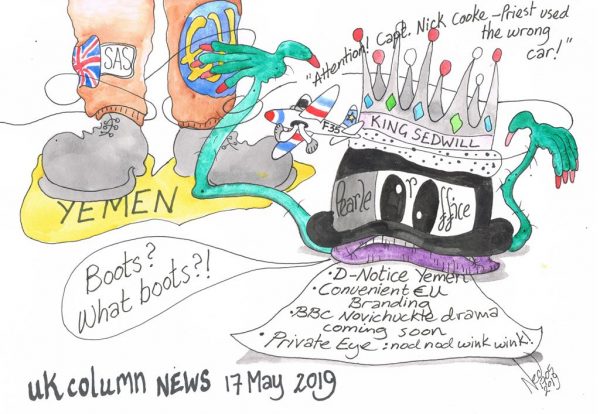 SAS
EU
"Attention! Capt. Nick Cooke – Priest used
the wrong
car!"
F35
KING SEDWILL
YEMEN
Pearle or office
Boots?
What boots?!
• D-Notice Yemen
• Convenient €U
Branding
• BBC Novichuckte drama
coming soon
• Private Eye: nod nod wink wink!
uk column NEWS 17 May 2019
2019